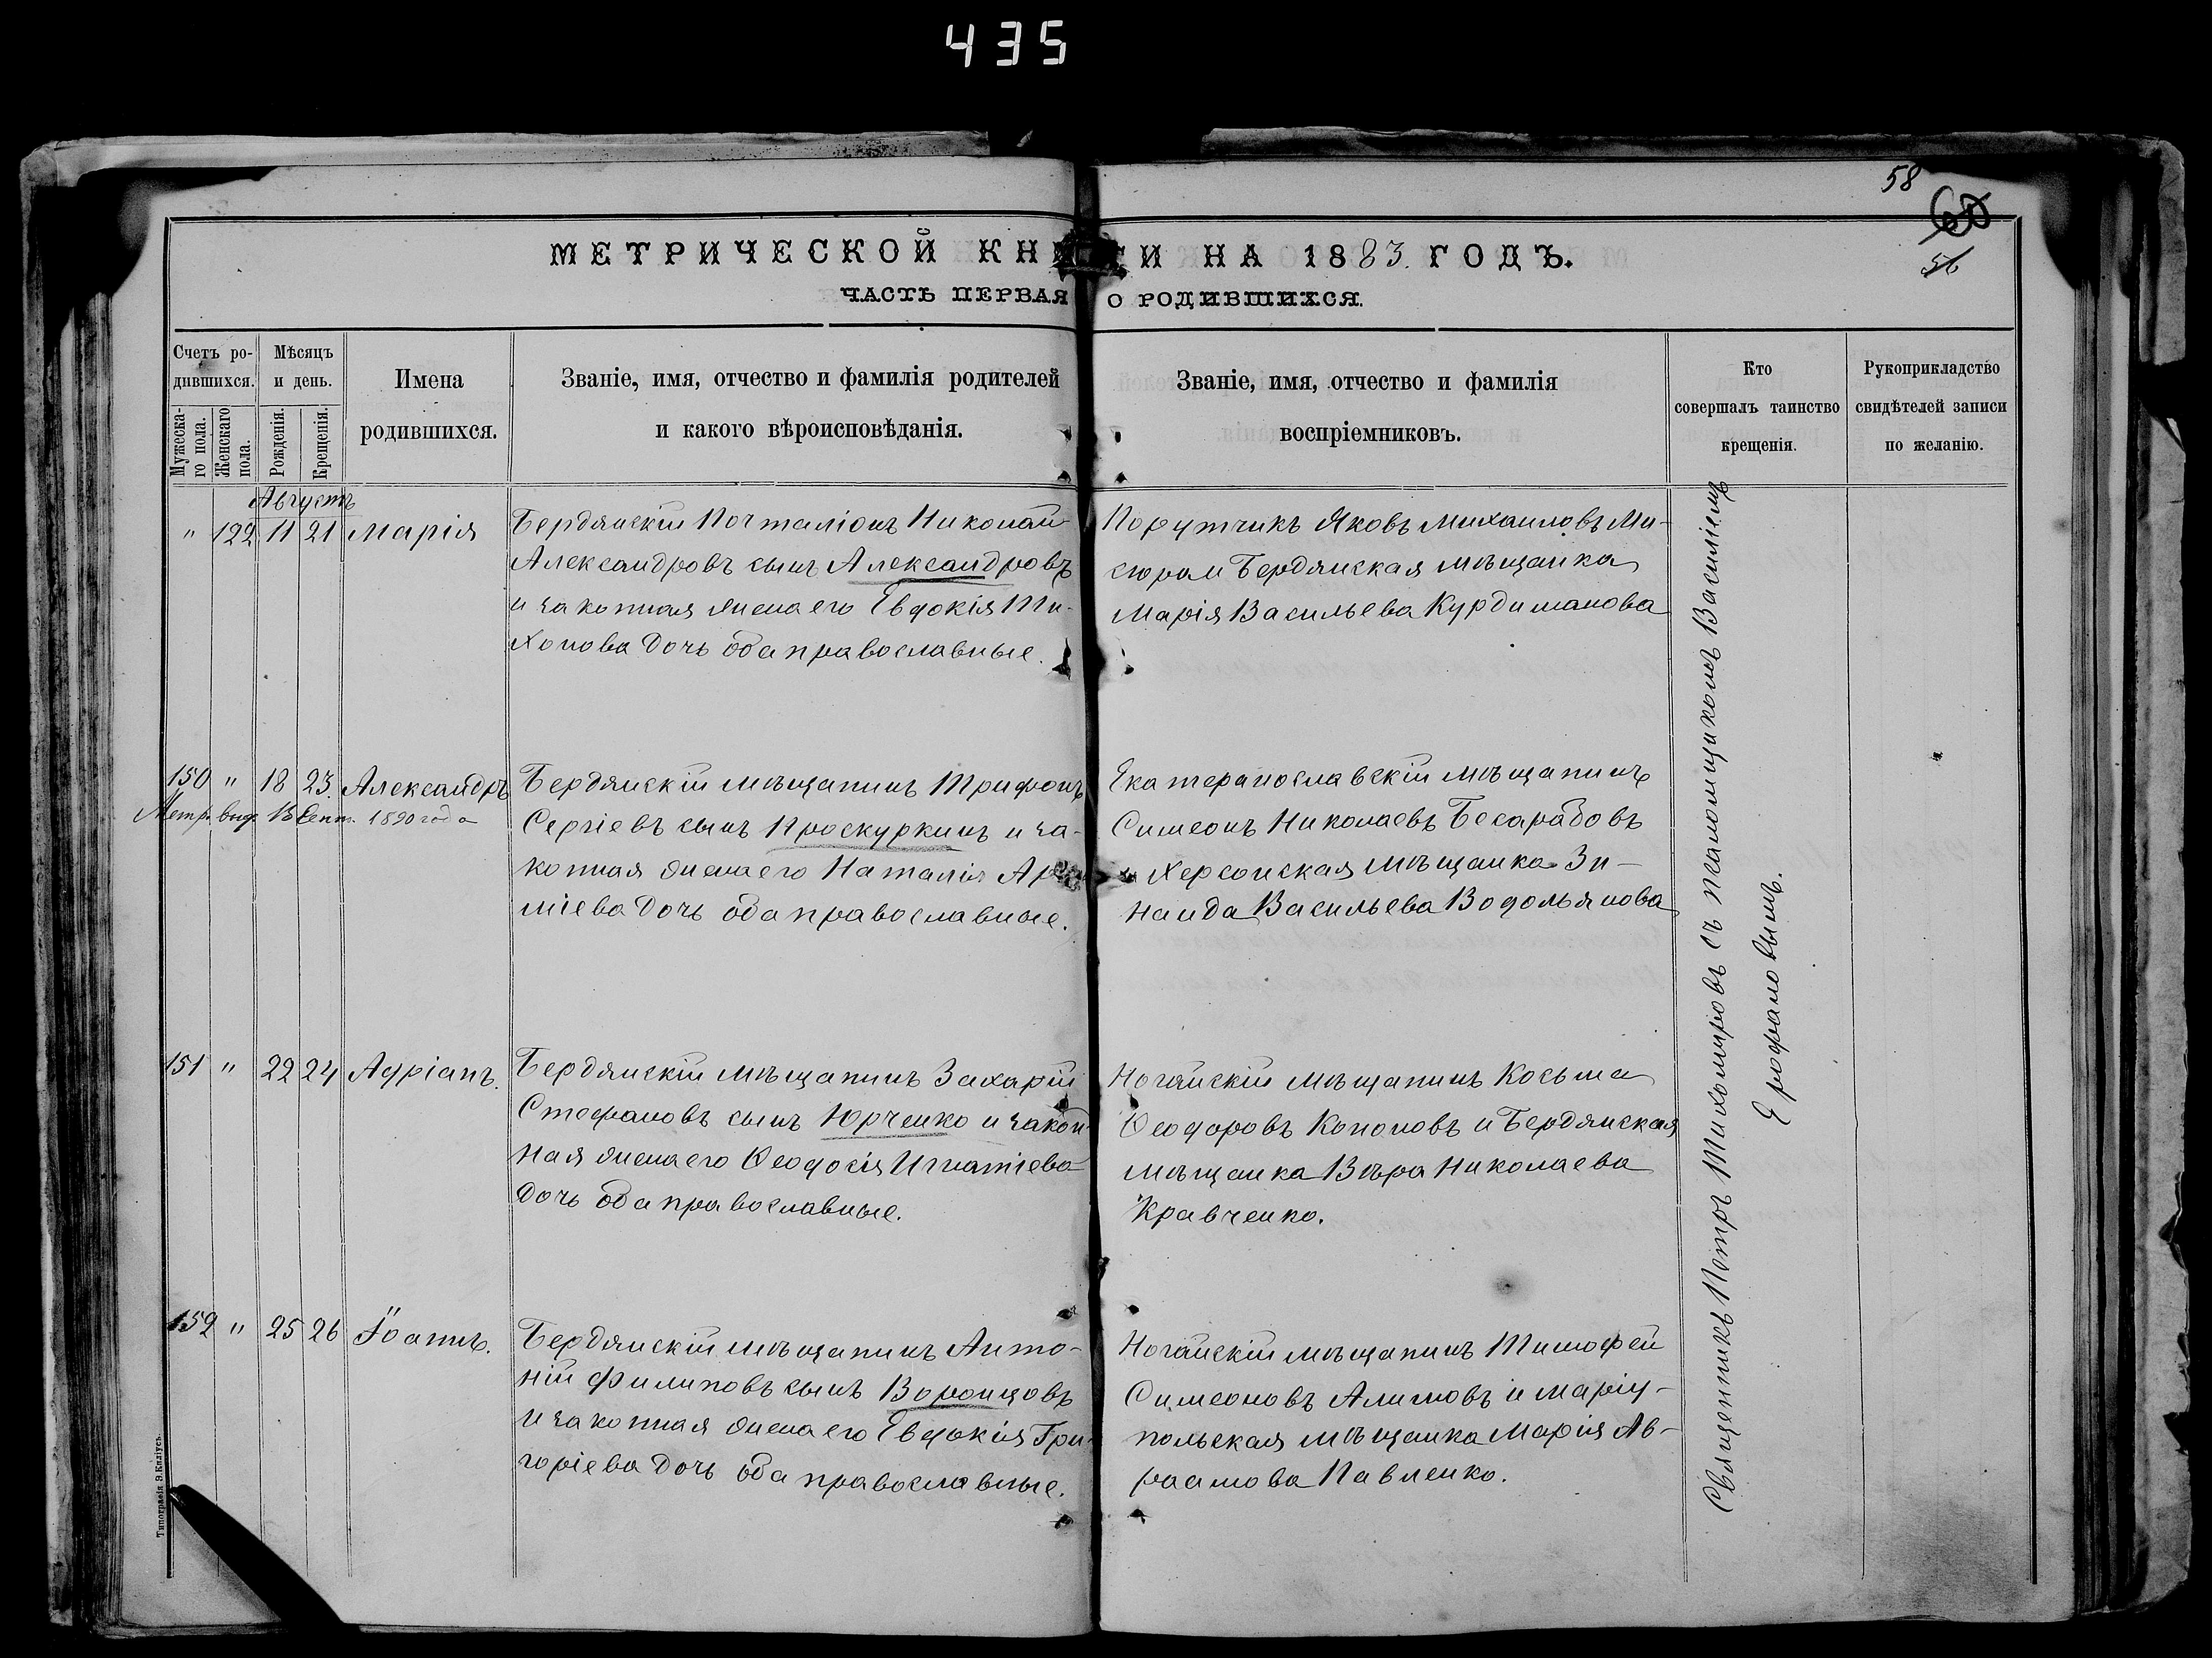 435
58
60
56
МЕТРИЧЕСКОЙ КНИГИ НА 1883. ГОДЪ.
ЧАСТЬ ПЕРВАЯ О РОДИВШИХСЯ.
Счетъ ро-
дившихся.
Мужеска-
го пола.
Женскаго
пола.
Мѣсяцъ
и день.
Рожденія.
Крещенія.
Имена
родившихся.
Званіе, имя, отчество и фамилія родителей
и какого вѣроисповѣданія.
Званіе, имя, отчество и фамилія
воспріемниковъ.
Кто
совершалъ таинство
крещенія.
Рукоприкладство
свидѣтелей записи
по желанію.
Августъ
" 122 11 21 Марія
Бердянскій Почталіонъ Николай
Александровъ сынъ Александровъ
и законная жена его Евдокія Ти-
хонова дочь оба православные.
Порутчикъ Яковъ Михаиловъ Ми-
Бердянская мѣщанка
Марія Васильева Курдиманова
150 " 18 23. Александръ
Метр. выд. 15 Сент. 1890 года
Бердянскій мѣщанинъ Трифонъ
Сергіевъ сынъ Проскуркинъ и за-
конная жена его Наталія
міева дочь оба православные.
Екатеранославскій мѣщанинъ
Симеонъ Николаевъ Бесарабовъ
и Херсонская мѣщанка Зи-
наида Васильева Водольянова
151 " 22 24 Адріанъ.
Бердянскій мѣщанинъ Захарій
Стефановъ сынъ Юрченко и закон-
ная жена его Ѳеодосія Игнатіева
дочь оба православные.
Ногайскій мѣщанинъ Косьма
Ѳеодоровъ Кононовъ и Бердянская
мѣщанка Вѣра Николаева
Кравченко.
152 " 25 26 Іоаннъ.
Бердянскій мѣщанинъ Анто-
ній Филиповъ сынъ Воронцовъ
и законная жена его Евдокія Гри-
горіева дочь оба православные.
Ногайскій мѣщанинъ Тимофей
Симеоновъ Алимовъ и Маріу-
польская мѣщанка Марія Ав-
раамова Павленко.
Священникъ Петръ Тихомировъ съ псаломщикомъ Василіемъ
Ерофановымъ.
Типографія Э. Киліусъ.